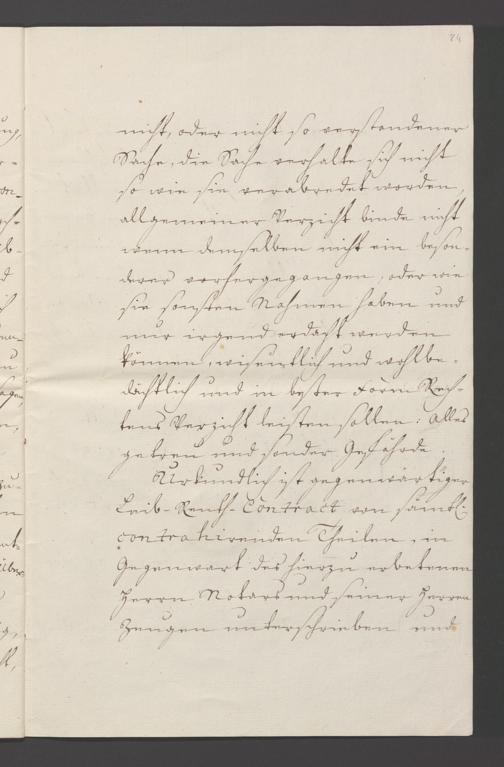 24
nicht, oder nicht so verstandener
Sache, die Sache verhalte sich nicht
so wie sie verabredet worden,
allgemeiner Verzicht binde nicht
wenn demselben nicht ein beson-
derer vorhergegangen, oder wie
sie sonsten Nahmen haben und
nur irgend erdacht werden
können, wisentlich und wohlbe-
dächtlich und in bester Form Rech-
tens Verzicht leisten sollen: Alles
getreu und sonder Gefährde.
Urkundlich ist gegenwärtiger
Leib-Renth-Contract von sämtl:
contrahirenden Theilen, in
Gegenwart des hierzu erbetenen
Herrn Notars und seiner Herren
Zeugen unterschrieben und